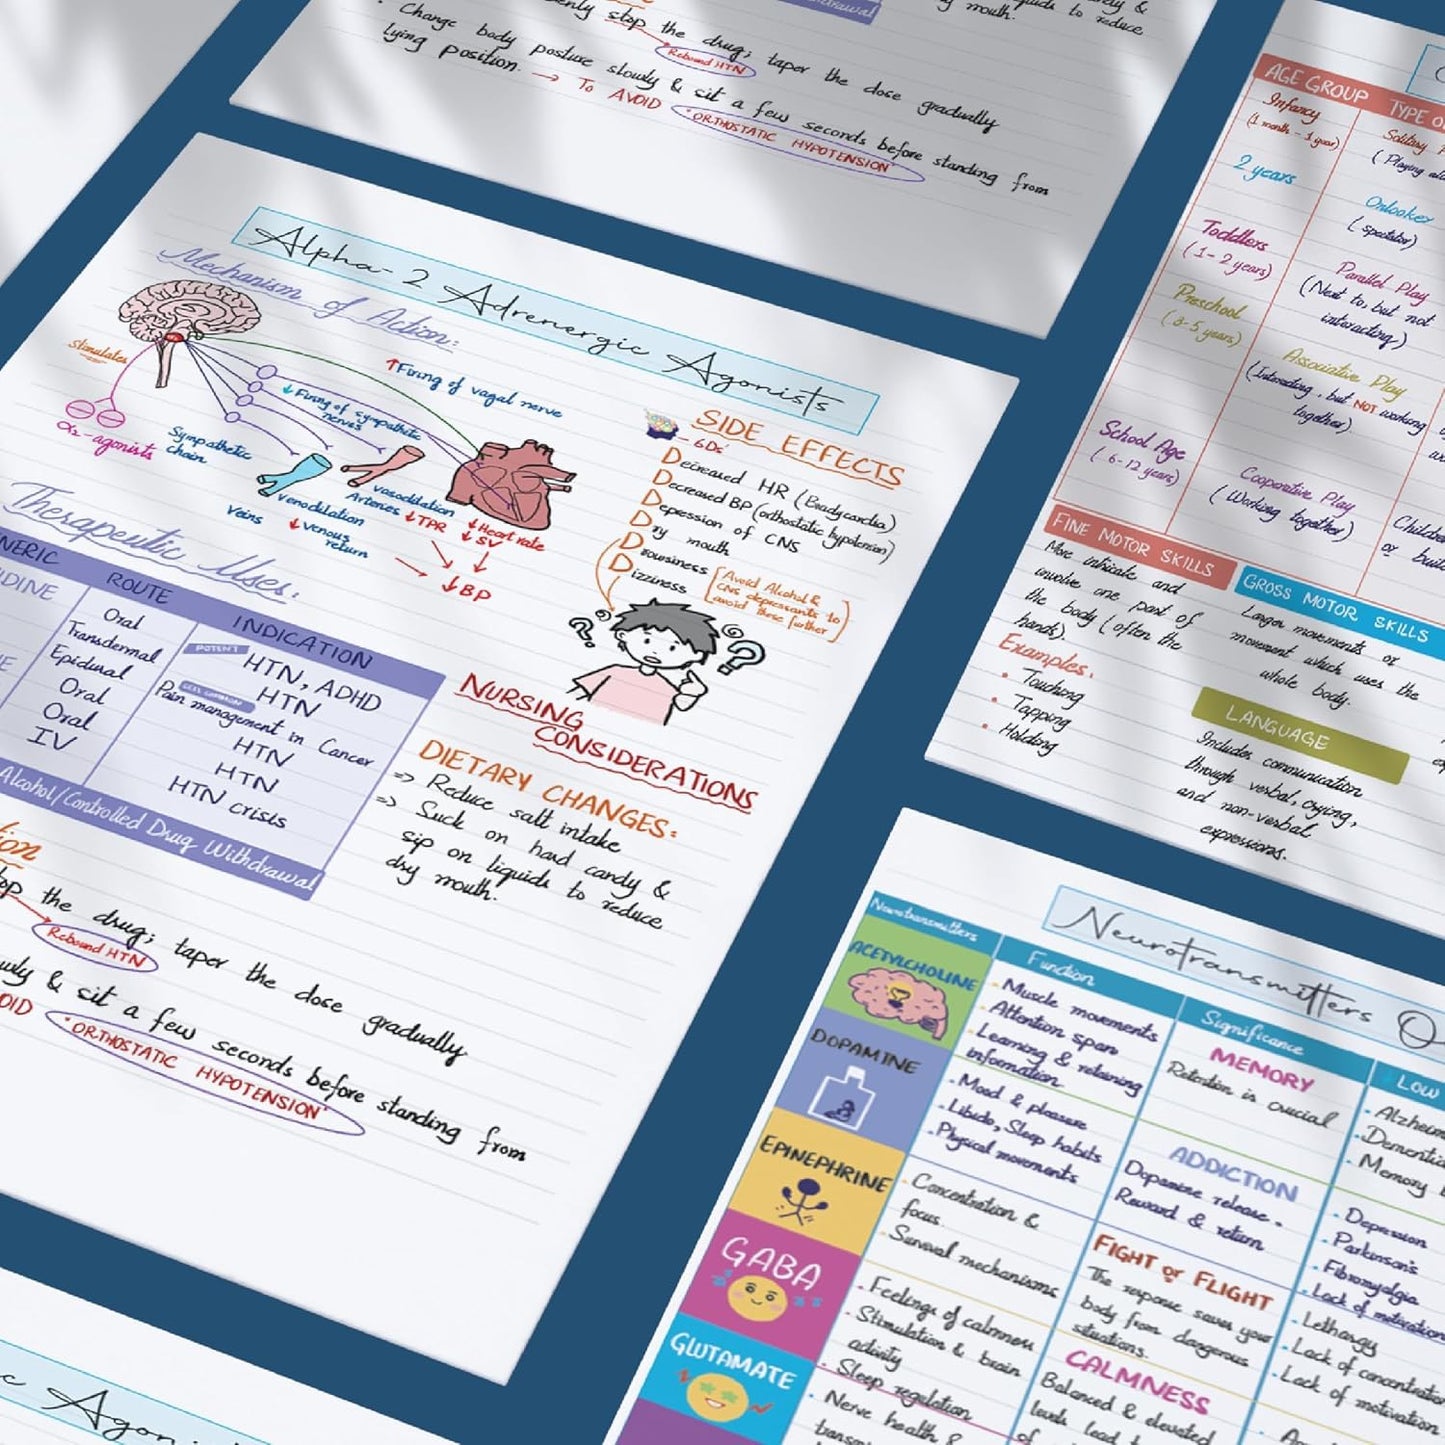 stop the drug; taper the dose gradually
Rebound HTN
Change body posture slowly & sit a few seconds before standing from
lying position. → To AVOID "ORTHOSTATIC HYPOTENSION"
mouth.
to reduce
Alpha-2 Adrenergic Agonists
Mechanism of Action:
Stimulates
α₂-agonists
Sympathetic
chain
↑Firing of vagal nerve
↓Firing of sympathetic
nerves
Venodilation
Veins
↓venous
return
vasodilation
Arteries ↓TPR
↓Heart rate
↓SV
↓BP
SIDE EFFECTS
- 6Ds'
Decreased HR (Bradycardia)
Decreased BP (orthostatic hypotension)
Depression of CNS
Dry mouth
Drowsiness
Dizziness
[Avoid Alcohol &
CNS depressants to
avoid these further]
Therapeutic Uses:
ROUTE
INDICATION
Oral
Transdermal
Epidural
Oral
Oral
IV
POTENT
HTN, ADHD
HTN
LESS COMMON
Pain management in Cancer
HTN
HTN
HTN crisis
Alcohol/Controlled Drug Withdrawal
NURSING
CONSIDERATIONS
DIETARY CHANGES:
=> Reduce salt intake
=> Suck on hard candy &
sip on liquids to reduce
dry mouth.
the drug; taper the dose gradually
Rebound HTN
& sit a few seconds before standing from
"ORTHOSTATIC HYPOTENSION"
AGE GROUP
TYPE
Infancy
(1 month - 1 year)
2 years
Toddlers
(1-2 years)
Preschool
(3-5 years)
School Age
(6-12 years)
Solitary
(Playing
Onlooker
(spectator)
Parallel Play
(Next to, but not
interacting)
Associative Play
(Interacting, but NOT working
together)
Cooperative Play
(Working together)
FINE MOTOR SKILLS
More intricate and
involve one part of
the body (often the
hands).
Examples:
• Touching
• Tapping
• Holding
GROSS MOTOR SKILLS
Larger movements or
movement which uses the
whole body.
LANGUAGE
Includes communication
through verbal, crying,
and non-verbal
expressions.
Neurotransmitters
Neurotransmitters
Function
Significance
LOW
ACETYLCHOLINE
• Muscle movements
• Attention span
• Learning & retaining
information
MEMORY
Retention is crucial
• Memory
DOPAMINE
• Mood & pleasure
• Libido, Sleep habits
• Physical movements
ADDICTION
Dopamine release.
Reward & return
• Depression
• Parkinson's
• Fibromyalgia
• Lack of motivation
EPINEPHRINE
• Concentration &
focus
• Survival mechanisms
FIGHT or FLIGHT
The response saves your
body from dangerous
situations.
• Lethargy
• Lack of concentration
• Lack of motivation
GABA
• Feelings of calmness
• Stimulation & brain
activity
• Sleep regulation
CALMNESS
Balanced & elevated
levels lead to
GLUTAMATE
• Nerve health &